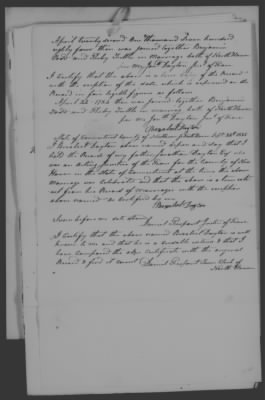 April twenty second One Thousand Seven hundred
eighty four then was joined together Benjamin
Dodd and Ruby Tuttle in marriage both of North Haven
per me Jonth Dayton Just of Peace
I Certify that the above is a true copy of the Record
with the exception of the date which is expressed on the
Record in four legible figures as follows
April 22 1784 then was joined together Benjamin
Dodd and Ruby Tuttle in marriage both of North Haven
per me Jonth Dayton Just of Peace
Beszaleel Dayton
State of Connecticut County of
I Beszaleel Dayton above named depose and say that I
hold the Record of my father Jonathan Dayton Esq who
was an acting Justice of the Peace for the County of New
Haven in the State of Connecticut at the time the above
Marriage was celebrated and that the above is a true extract
from his Record of Marriages with the exception
above named as Certified by me
Beszaleel Dayton
Sworn before me date above
Samuel Pierpont Justice of Peace
I Certify that the above named Beszaleel Dayton is well
known to me and that he is a credible witness & that I
have compared the above Certificate with the original
Record & find it correct Samuel Pierpont Town Clerk of
North Haven